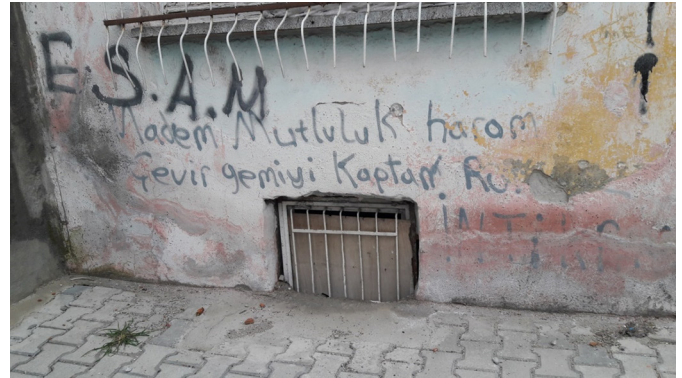 E.S.A.M
Madem Mutluluk haram
Çevir gemiyi Kaptan Bu
İNTİHAR